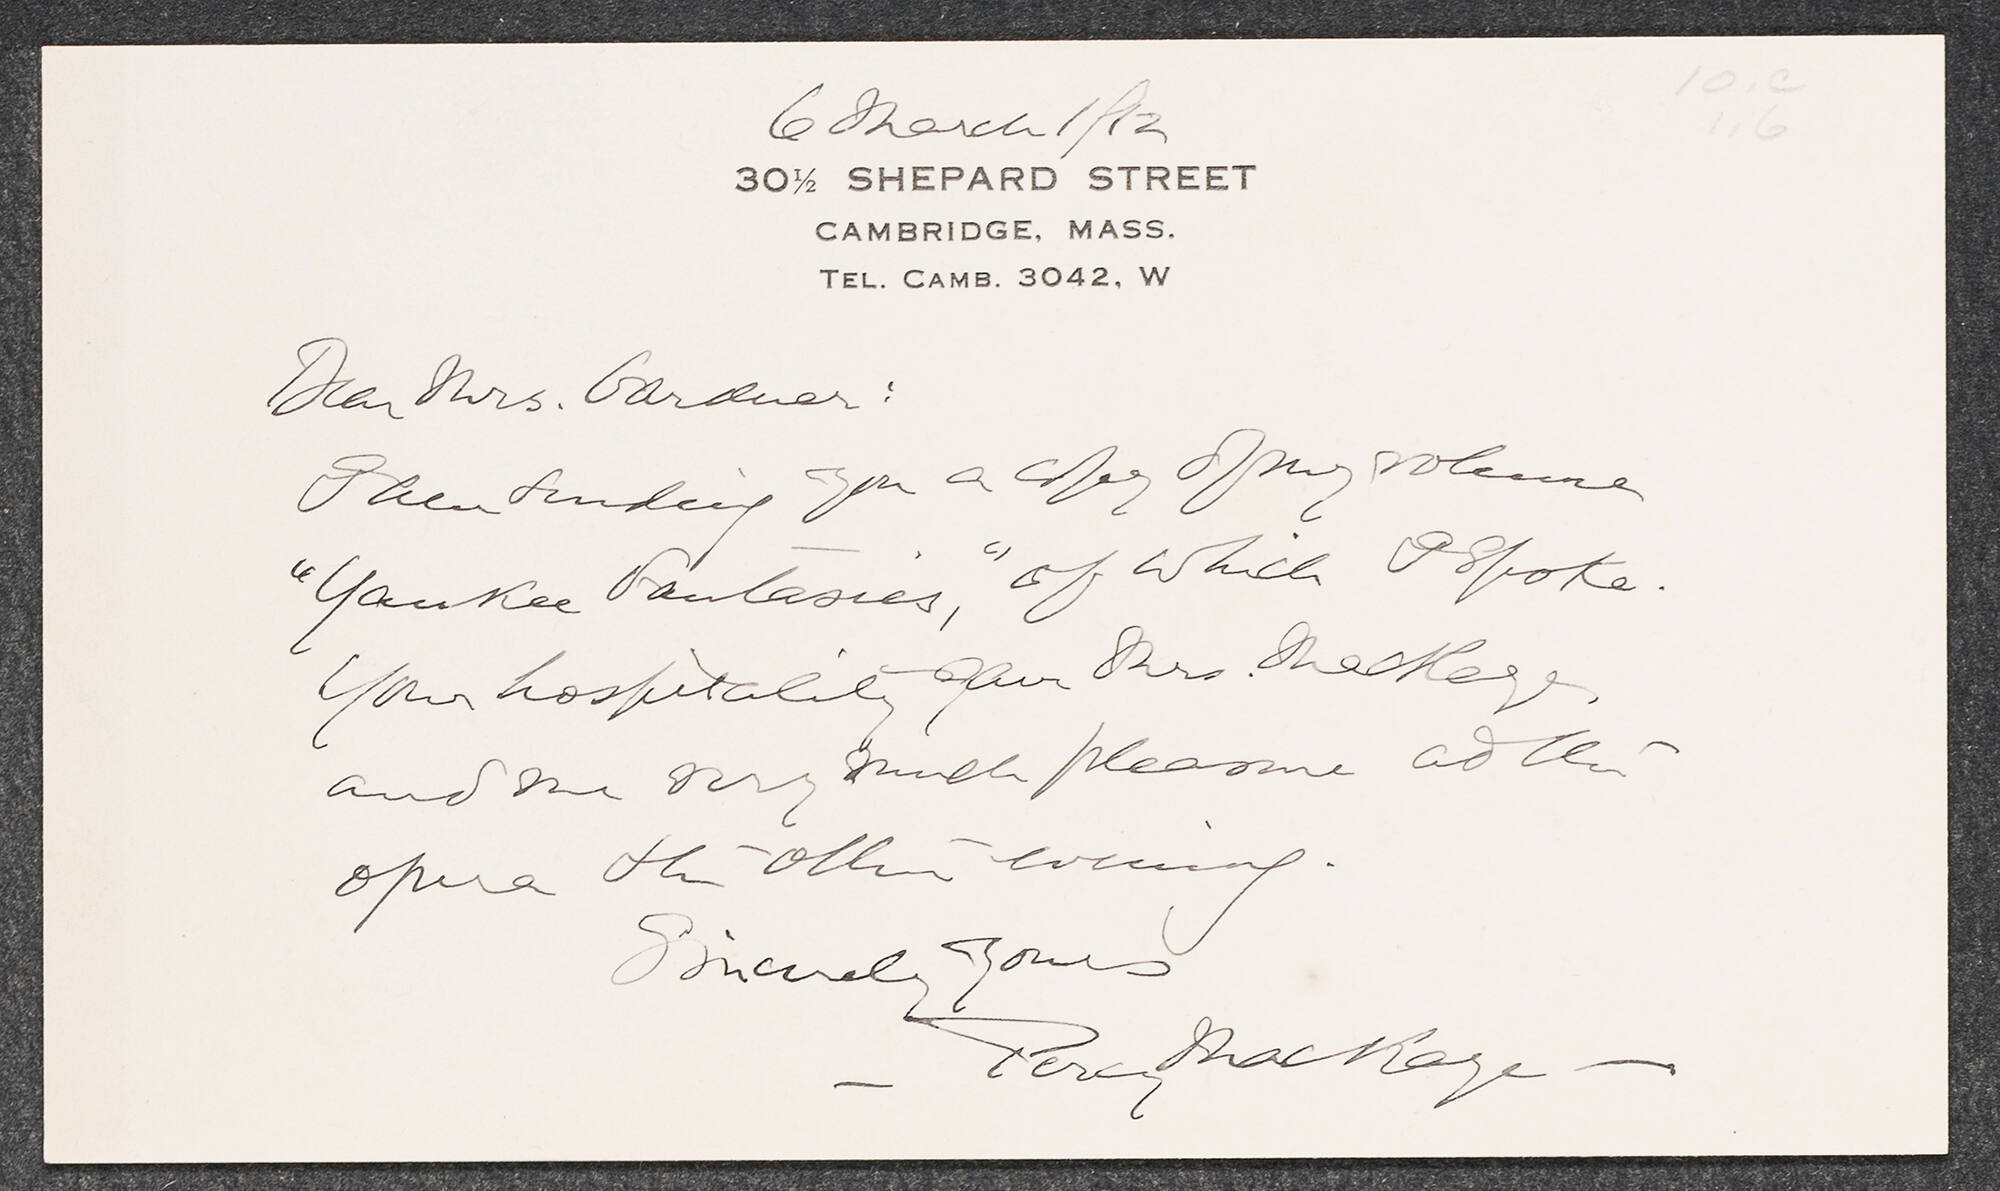 10.C
1.6
6 March 1912
30½ SHEPARD STREET
CAMBRIDGE, MASS.
TEL. CAMB. 3042, W
Dear Mrs. Gardner:
I am sending you a copy of my volume
"Yankee Fantasies," of which I spoke.
Your hospitality gave Mrs. MacKaye
and me very much pleasure at the
opera the other evening.
Sincerely yours
— Percy MacKaye —